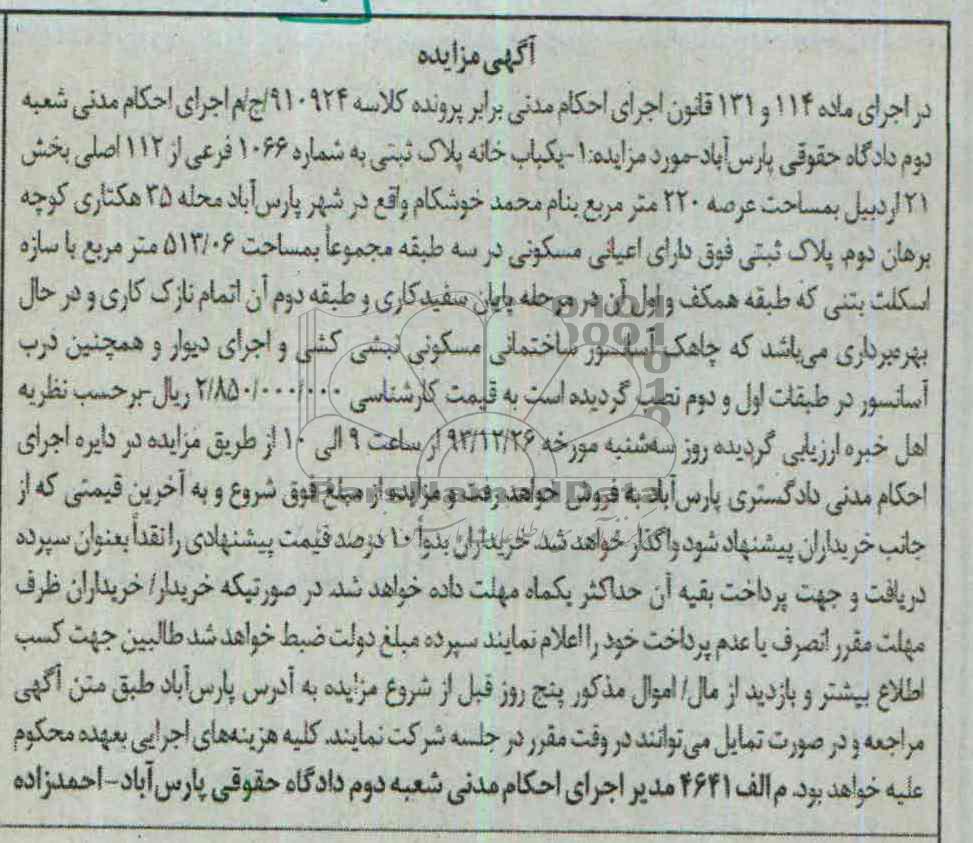 آگهی مزایده
در اجرای ماده ۱۱۴ و ۱۳۱ قانون اجرای احکام مدنی برابر پرونده کلاسه ۹۱۰۹۲۴/ج/م اجرای احکام مدنی شعبه
دوم دادگاه حقوقی پارس‌آباد-مورد مزایده:۱-یکباب خانه پلاک ثبتی به شماره ۱۰۶۶ فرعی از ۱۱۲ اصلی بخش
۲۱ اردبیل بمساحت عرصه ۲۲۰ متر مربع بنام محمد خوشکام واقع در شهر پارس‌آباد محله ۳۵ هکتاری کوچه
برهان دوم. پلاک ثبتی فوق دارای اعیانی مسکونی در سه طبقه مجموعاً بمساحت ۵۱۳/۰۶ متر مربع با سازه
اسکلت بتنی که طبقه همکف و اول آن در مرحله پایان سفیدکاری و طبقه دوم آن اتمام نازک کاری و در حال
بهره‌برداری می‌باشد که چاهک آسانسور ساختمانی مسکونی نبشی کشی و اجرای دیوار و همچنین درب
آسانسور در طبقات اول و دوم نصب گردیده است به قیمت کارشناسی ۲/۸۵۰/۰۰۰/۰۰۰ ریال-برحسب نظریه
اهل خبره ارزیابی گردیده روز سه‌شنبه مورخه ۹۳/۱۲/۲۶ از ساعت ۹ الی ۱۰ از طریق مزایده در دایره اجرای
احکام مدنی دادگستری پارس‌آباد به فروش خواهد رفت و مزایده از مبلغ فوق شروع و به آخرین قیمتی که از
جانب خریداران پیشنهاد شود واگذار خواهد شد. خریداران بدواً ۱۰ درصد قیمت پیشنهادی را نقداً بعنوان سپرده
دریافت و جهت پرداخت بقیه آن حداکثر یکماه مهلت داده خواهد شد. در صورتیکه خریدار/ خریداران ظرف
مهلت مقرر انصرف یا عدم پرداخت خود را اعلام نمایند سپرده مبلغ دولت ضبط خواهد شد طالبین جهت کسب
اطلاع بیشتر و بازدید از مال/ اموال مذکور پنج روز قبل از شروع مزایده به آدرس پارس‌آباد طبق متن آگهی
مراجعه و در صورت تمایل می‌توانند در وقت مقرر در جلسه شرکت نمایند. کلیه هزینه‌های اجرایی بعهده محکوم
علیه خواهد بود. م الف ۴۶۴۱ مدیر اجرای احکام مدنی شعبه دوم دادگاه حقوقی پارس‌آباد-احمدزاده